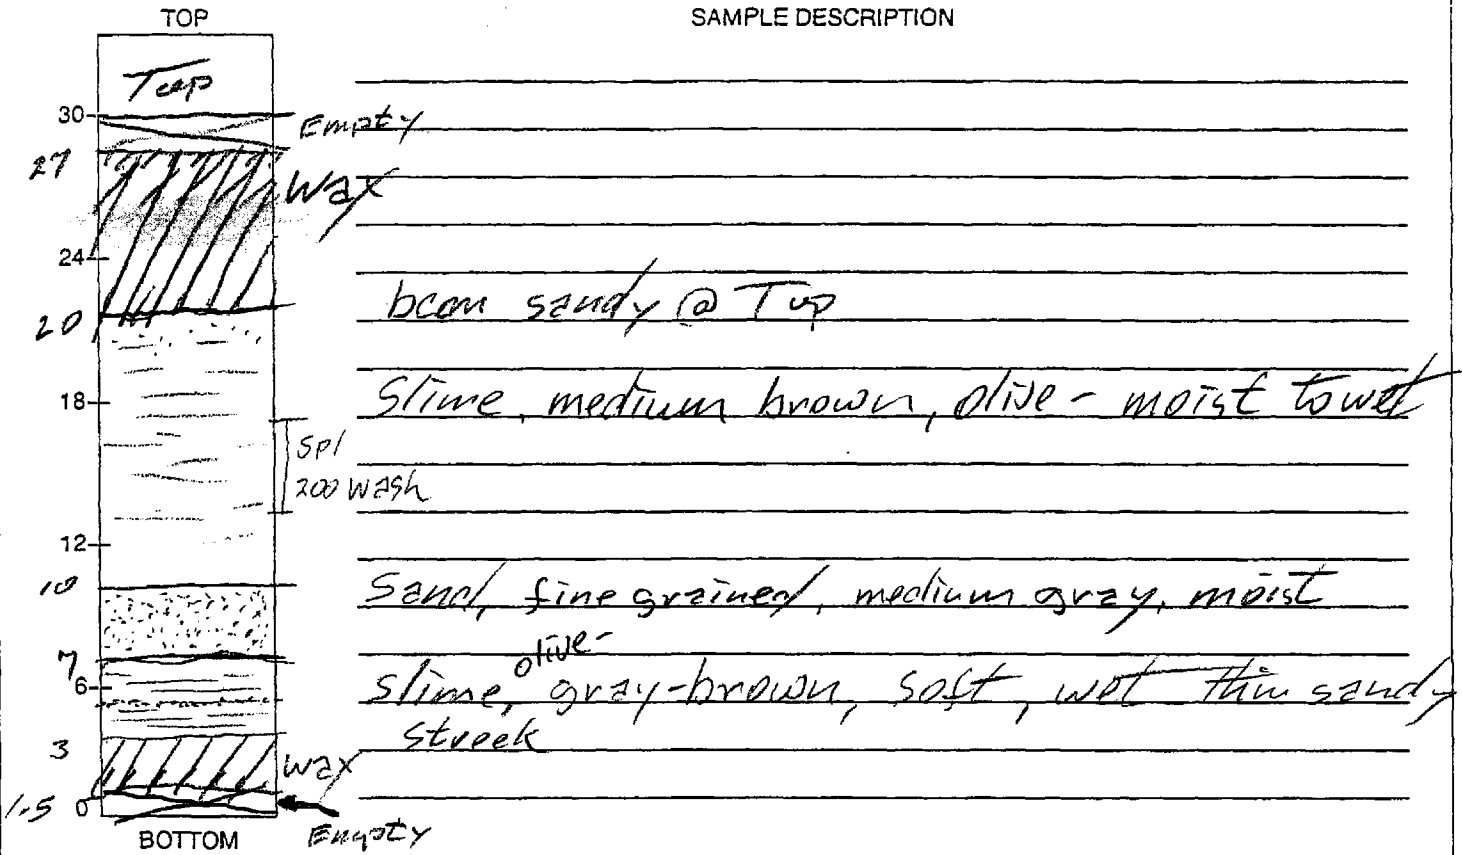 TOP
SAMPLE DESCRIPTION
Top
30
Empty
27
Wax
24
becom sandy @ Top
20
Slime, medium brown, olive - moist to wet
18
Spl
200 Wash
12
10
Sand, fine grained, medium gray, moist
7
olive-
6
slime, gray-brown, soft, wet thin sandy
streek
3
wax
1.5
0
Empty
BOTTOM